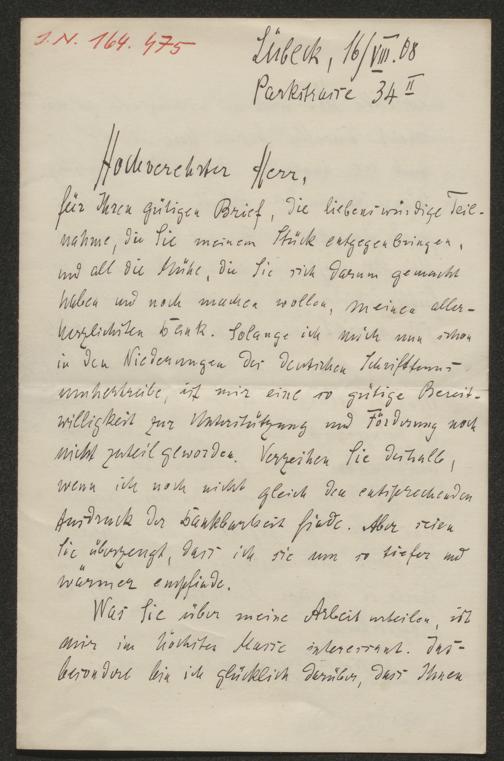 J.N. 164.475
Lübeck, 16/VIII.08
Parkstrasse 34 II
Hochverehrter Herr,
für Ihren gütigen Brief, die liebenswürdige Teil-
nahme, die Sie meinem Stück entgegenbringen,
und all die Mühe, die Sie sich darum gemacht
haben und noch machen wollen, meinen aller-
herzlichsten Dank. Solange ich mich nun schon
in den Niederungen des deutschen Schrifttums
umhertreibe, ist mir eine so gütige Bereit-
willigkeit zur Unterstützung und Förderung noch
nicht zuteil geworden. Verzeihen Sie deshalb,
wenn ich noch nicht gleich den entsprechenden
Ausdruck der Dankbarkeit finde. Aber seien
Sie überzeugt, dass ich sie um so tiefer und
wärmer empfinde.
Was Sie über meine Arbeit urteilen, ist
mir im höchsten Masse interessant. Ins-
besondere bin ich glücklich darüber, dass Ihnen